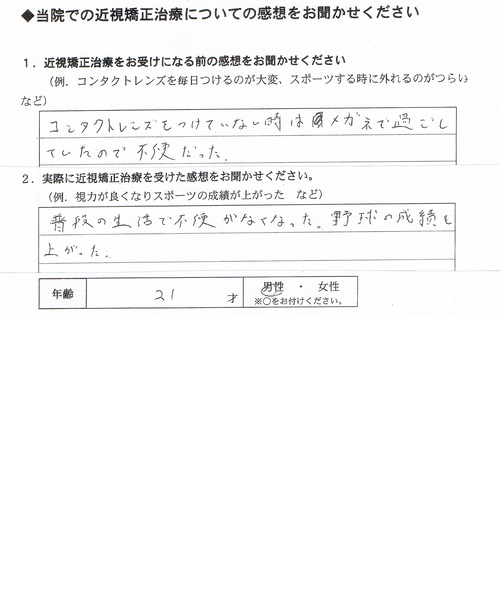 ◆当院での近視矯正治療についての感想をお聞かせください
１．近視矯正治療をお受けになる前の感想をお聞かせください
（例．コンタクトレンズを毎日つけるのが大変、スポーツする時に外れるのがつらい
など）
コンタクトレンズをつけていない時はメガネで過ごし
ていたので不便だった。
２．実際に近視矯正治療を受けた感想をお聞かせください。
（例．視力が良くなりスポーツの成績が上がった　など）
普段の生活で不便がなくなった。野球の成績も
上がった。
年齢　21　才　男性　・　女性
※○をお付けください。